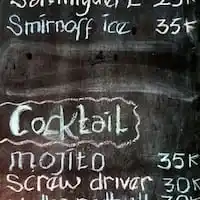 Smirnoff ice 35K
Cocktail
mojito 35K
Screw driver 30K